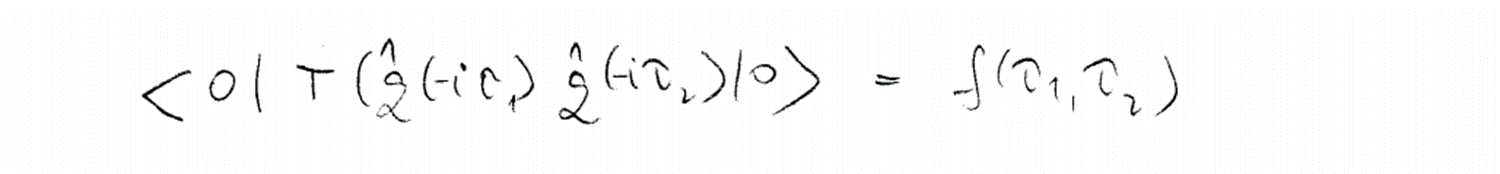 <0| T(q̂(-iτ₁) q̂(-iτ₂)|0> = f(τ₁,τ₂)